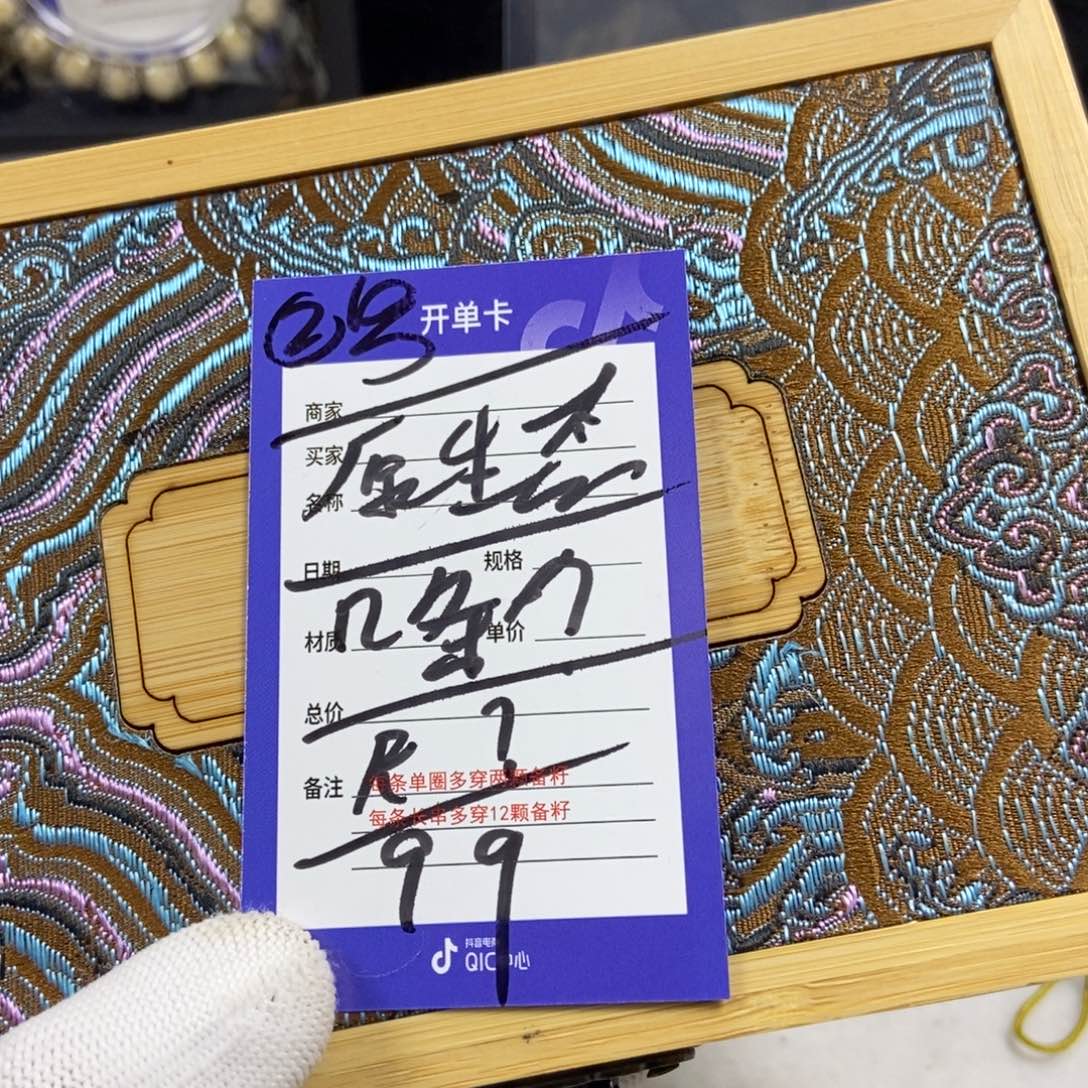 ②号 开单卡
商家
买家
原生态
名称
日期 规格
几条
材质 单价
总价
R ?
备注 每条单圈多穿两颗备籽
每条长串多穿12颗备籽
99
抖音电商
QIC中心